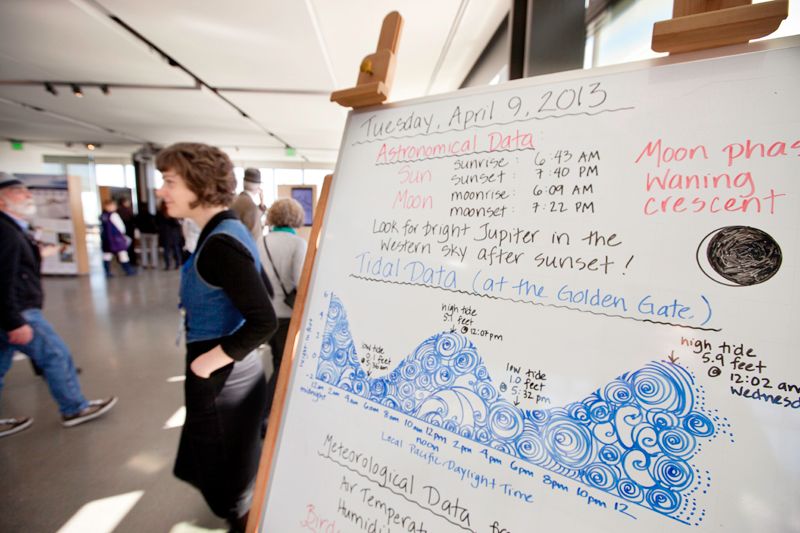 Tuesday, April 9, 2013
Astronomical Data:
Sun sunrise: 6:43 AM
sunset: 7:40 PM
Moon moonrise: 6:09 AM
moonset: 7:22 PM
Moon phas
Waning
crescent
Look for bright Jupiter in the
western sky after sunset!
Tidal Data (at the Golden Gate)
high tide
5.1 feet
@ 12:07pm
low tide
0.1 feet
@
low tide
1.0 feet
@ 5:32 pm
high tide
5.9 feet
@ 12:02 am
Wednesd
6
4
2
0
-2
12am 2am 4am 6am 8am 10am 12pm 2pm 4pm 6pm 8pm 10pm 12
midnight
noon
Local Pacific Daylight Time
Meteorological Data
Air Temperat
Humidi
Bird